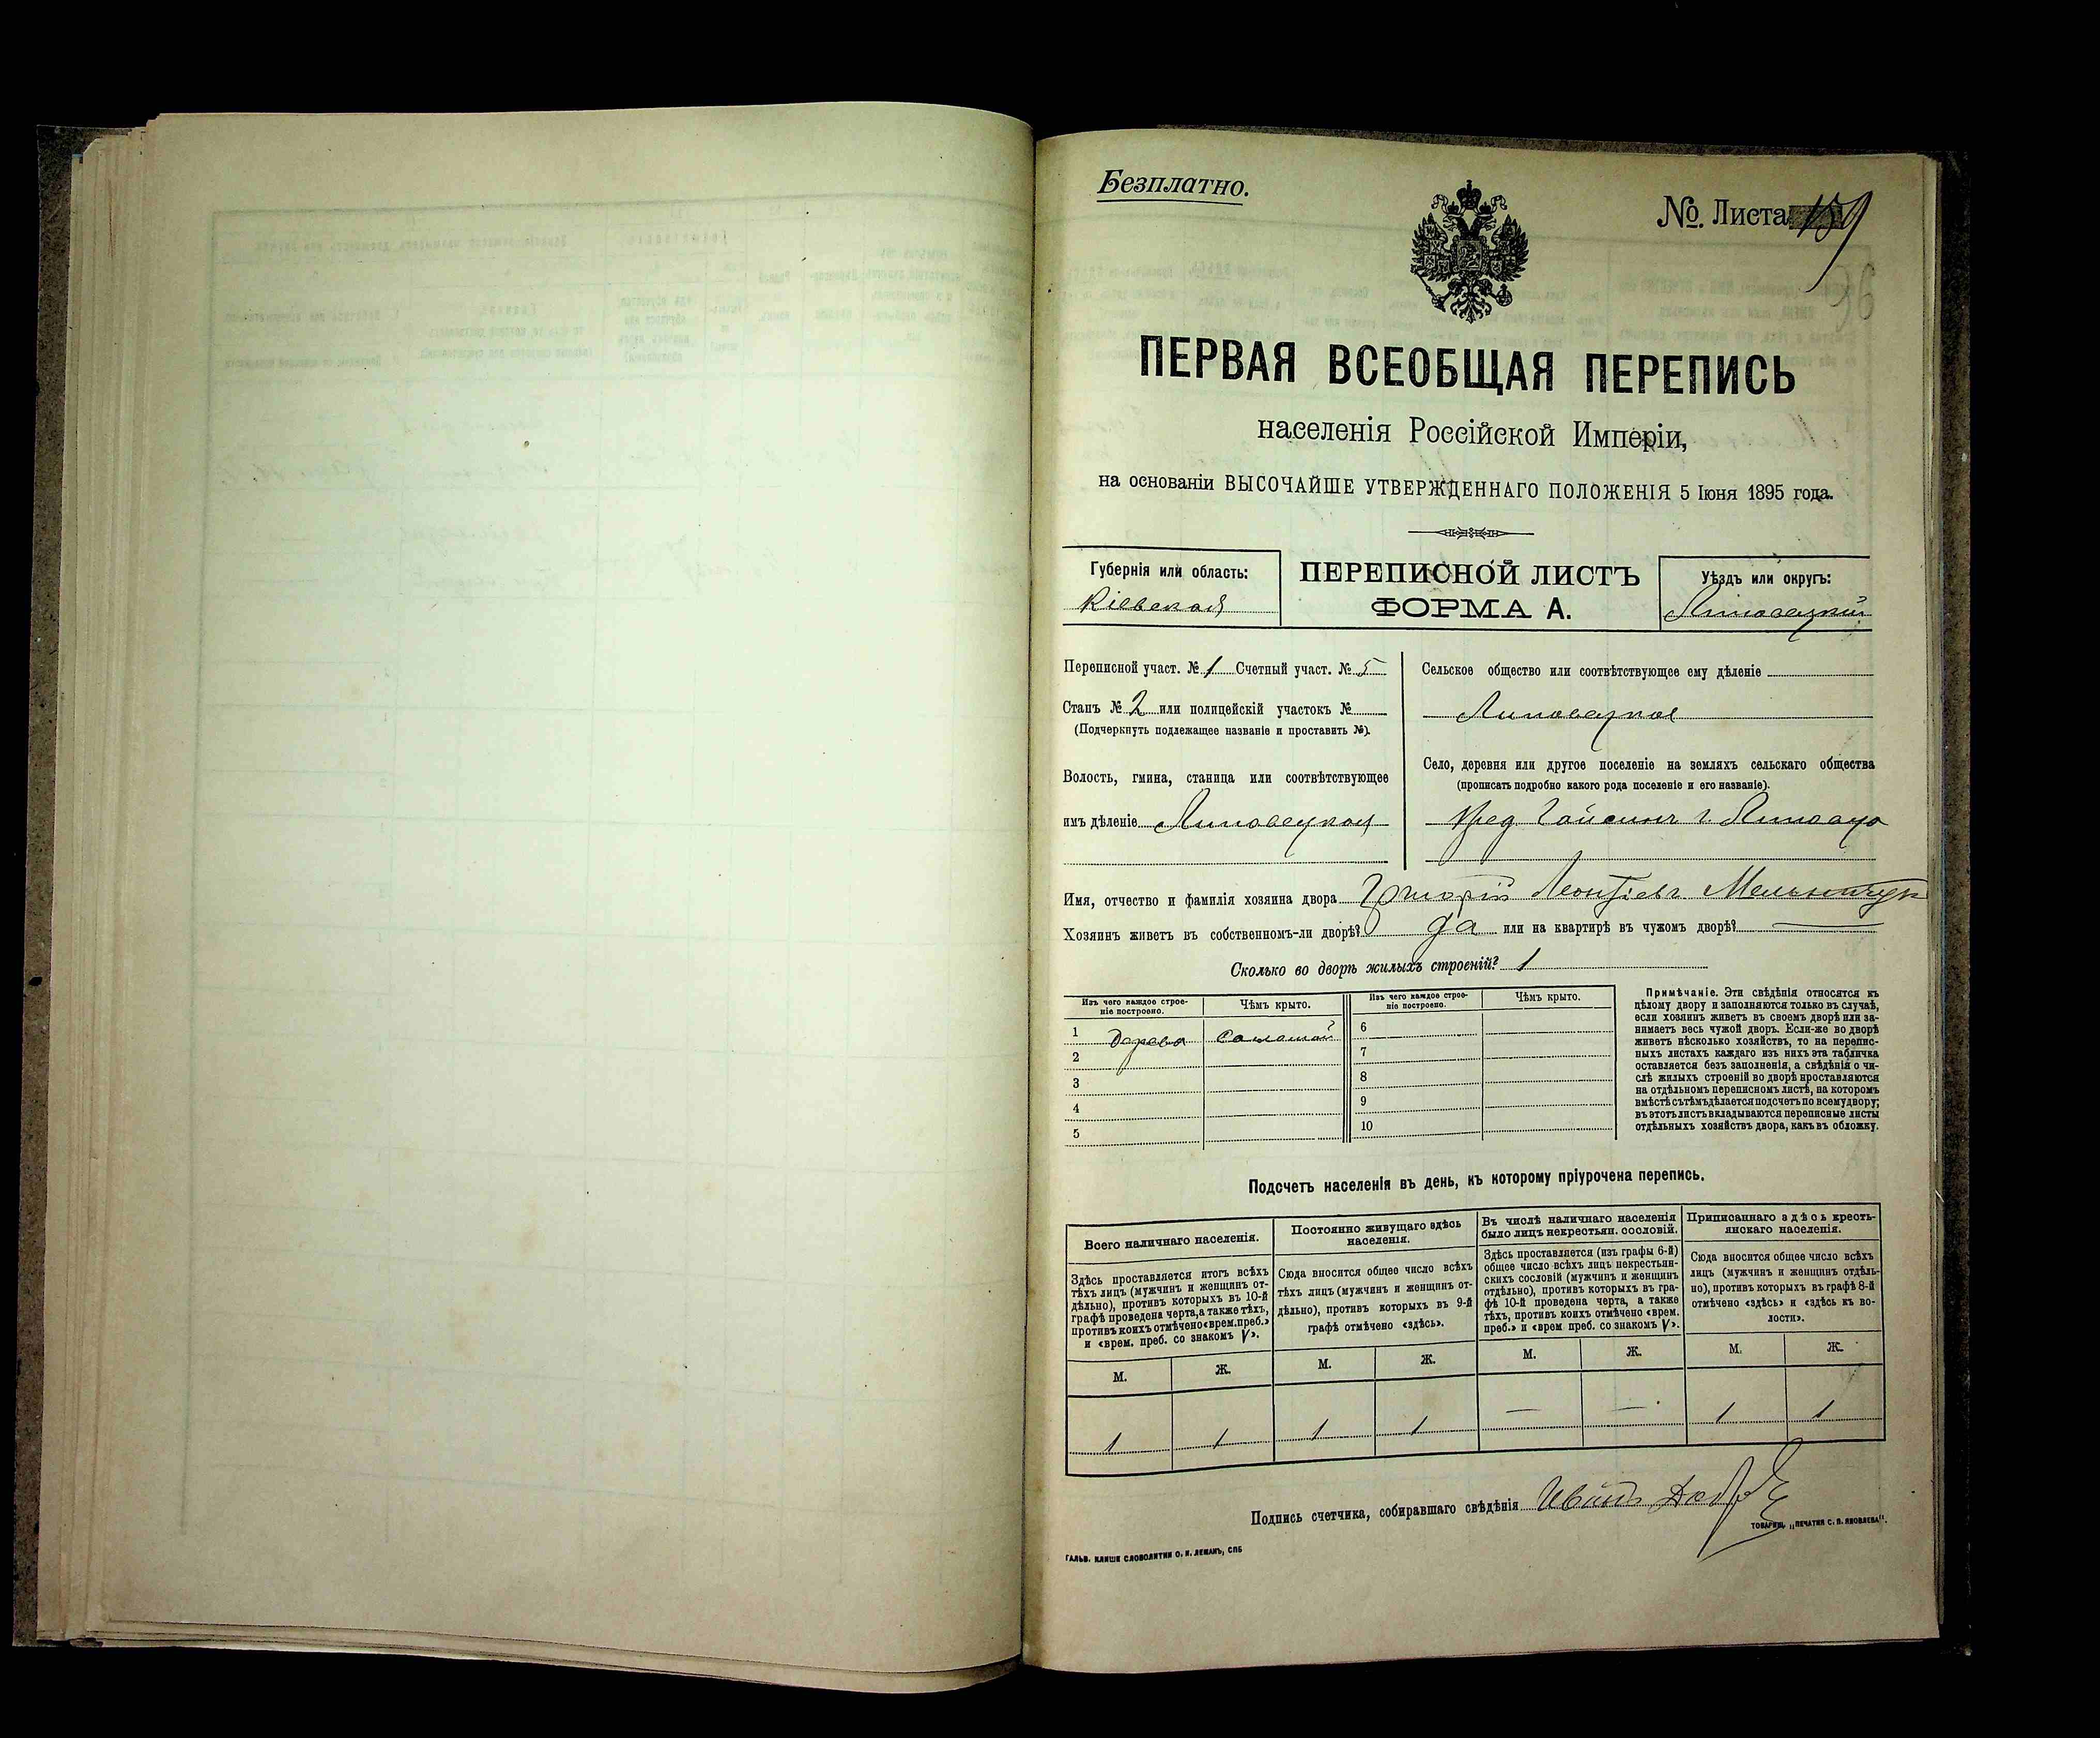 Безплатно.
№. Листа 159
ПЕРВАЯ ВСЕОБЩАЯ ПЕРЕПИСЬ
населенія Россійской Имперіи,
на основаніи ВЫСОЧАЙШЕ УТВЕРЖДЕННАГО ПОЛОЖЕНІЯ 5 Іюня 1895 года.
Губернія или область:
Кіевская
ПЕРЕПИСНОЙ ЛИСТЪ
ФОРМА А.
Уѣздъ или округъ:
Липовецкій
Переписной участ. № 1 Счетный участ. № 5
Станъ № 2 или полицейскій участокъ №
(Подчеркнуть подлежащее названіе и проставить №).
Волость, гмина, станица или соотвѣтствующее
имъ дѣленіе Липовецкая
Сельское общество или соотвѣтствующее ему дѣленіе
Липовецкое
Село, деревня или другое поселеніе на земляхъ сельскаго общества
(прописать подробно какого рода поселеніе и его названіе).
пред. Гайсинъ г. Липовца
Имя, отчество и фамилія хозяина двора Григорій Леонтіевъ Мельничукъ
Хозяинъ живетъ въ собственномъ-ли дворѣ? да или на квартирѣ въ чужомъ дворѣ? —
Сколько во дворѣ жилыхъ строеній? 1
Изъ чего каждое строе-
ніе построено.
Чѣмъ крыто.
Изъ чего каждое строе-
ніе построено.
Чѣмъ крыто.
1 дерева соломой
2
3
4
5
6
7
8
9
10
Примѣчаніе. Эти свѣдѣнія относятся къ
цѣлому двору и заполняются только въ случаѣ,
если хозяинъ живетъ въ своемъ дворѣ или за-
нимаетъ весь чужой дворъ. Если-же во дворѣ
живетъ нѣсколько хозяйствъ, то на перепис-
ныхъ листахъ каждаго изъ нихъ эта табличка
оставляется безъ заполненія, а свѣдѣнія о чи-
слѣ жилыхъ строеній во дворѣ проставляются
на отдѣльномъ переписномъ листѣ, на которомъ
вмѣстѣ съ тѣмъ дѣлается подсчетъ по всему двору;
въ этотъ листъ вкладываются переписные листы
отдѣльныхъ хозяйствъ двора, какъ въ обложку.
Подсчетъ населенія въ день, къ которому пріурочена перепись.
Всего наличнаго населенія.
Здѣсь проставляется итогъ всѣхъ
тѣхъ лицъ (мужчинъ и женщинъ от-
дѣльно), противъ которыхъ въ 10-й
графѣ проведена черта, а также тѣхъ,
противъ коихъ отмѣчено «врем. преб.»
и «врем. преб. со знакомъ V».
М. Ж.
1 1
Постоянно живущаго здѣсь
населенія.
Сюда вносится общее число всѣхъ
тѣхъ лицъ (мужчинъ и женщинъ от-
дѣльно), противъ которыхъ въ 9-й
графѣ отмѣчено «здѣсь».
М. Ж.
1 1
Въ числѣ наличнаго населенія
было лицъ некрестьян. сословій.
Здѣсь проставляется (изъ графы 6-й)
общее число всѣхъ лицъ некрестьян-
скихъ сословій (мужчинъ и женщинъ
отдѣльно), противъ которыхъ въ гра-
фѣ 10-й проведена черта, а также
тѣхъ, противъ коихъ отмѣчено «врем.
преб.» и «врем преб. со знакомъ V».
М. Ж.
— —
Приписаннаго здѣсь кресть-
янскаго населенія.
Сюда вносится общее число всѣхъ
лицъ (мужчинъ и женщинъ отдѣль-
но), противъ которыхъ въ графѣ 8-й
отмѣчено «здѣсь» и «здѣсь къ во-
лости».
М. Ж.
1 1
Подпись счетчика, собиравшаго свѣдѣнія Иванъ
ТОВАРИЩ. „ПЕЧАТНЯ С. П. ЯКОВЛЕВА".
ГАЛЬВ. КЛИШЕ СЛОВОЛИТНИ О. И. ЛЕМАНЪ, СПБ